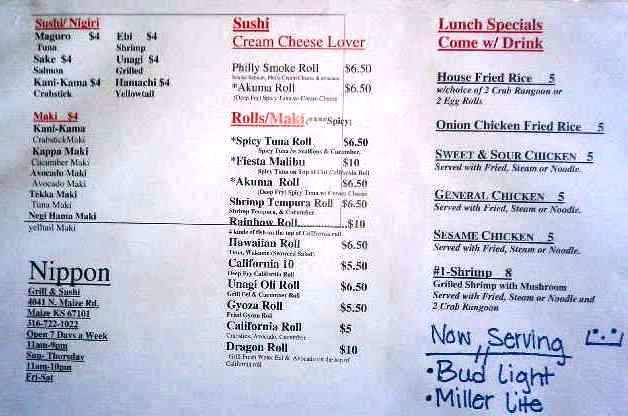 Sushi/ Nigiri
Maguro $4 Ebi $4
Tuna Shrimp
Sake $4 Unagi $4
Salmon Grilled
Kani-Kama $4 Hamachi $4
Crabstick Yellowtail
Maki $4
Kani-Kama
CrabstickMaki
Kappa Maki
Cucumber Maki
Avocado Maki
Avocado Maki
Tekka Maki
Tuna Maki
Negi Hama Maki
yelltail Maki
Nippon
Grill & Sushi
4041 N. Maize Rd.
Maize KS 67101
316-722-1022
Open 7 Days a Week
11am-9pm
Sun- Thursday
11am-10pm
Fri-Sat
Sushi
Cream Cheese Lover
Philly Smoke Roll $6.50
*Akuma Roll $6.50
(Deep Fry) Spicy Tuna w/ Cream Cheese
Rolls/Maki (***Spicy)
*Spicy Tuna Roll $6.50
Spicy Tuna w/ Scallions & Cucumber
*Fiesta Malibu $10
Spicy Tuna on Top of Cali California Roll
*Akuma Roll $6.50
(Deep Fry) Spicy Tuna w/ Cream Cheese
Shrimp Tempura Roll $6.50
Shrimp Tempura, & Cucumber
Rainbow Roll...............$10
4 kinds of fish on the top of California roll
Hawaiian Roll $6.50
Tuna, Wakame (Seaweed Salad)
California 10 $5.50
Deep Fry California Roll
Unagi Oli Roll $6.50
Grill Eel & Cucumber Roll
Gyoza Roll $5.50
Fried Gyoza Roll
California Roll $5
Crabstick, Avocado, Cucumber
Dragon Roll $10
Grill Fresh Water Eel & Avocado on the top of
California roll
Lunch Specials
Come w/ Drink
House Fried Rice 5
w/choice of 2 Crab Rangoon or
2 Egg Rolls
Onion Chicken Fried Rice 5
SWEET & SOUR CHICKEN 5
Served with Fried, Steam or Noodle.
GENERAL CHICKEN 5
Served with Fried, Steam or Noodle.
SESAME CHICKEN 5
Served with Fried, Steam or Noodle.
#1-Shrimp 8
Grilled Shrimp with Mushroom
Served with Fried, Steam or Noodle and
2 Crab Rangoon
Now Serving
•Bud light
•Miller lite